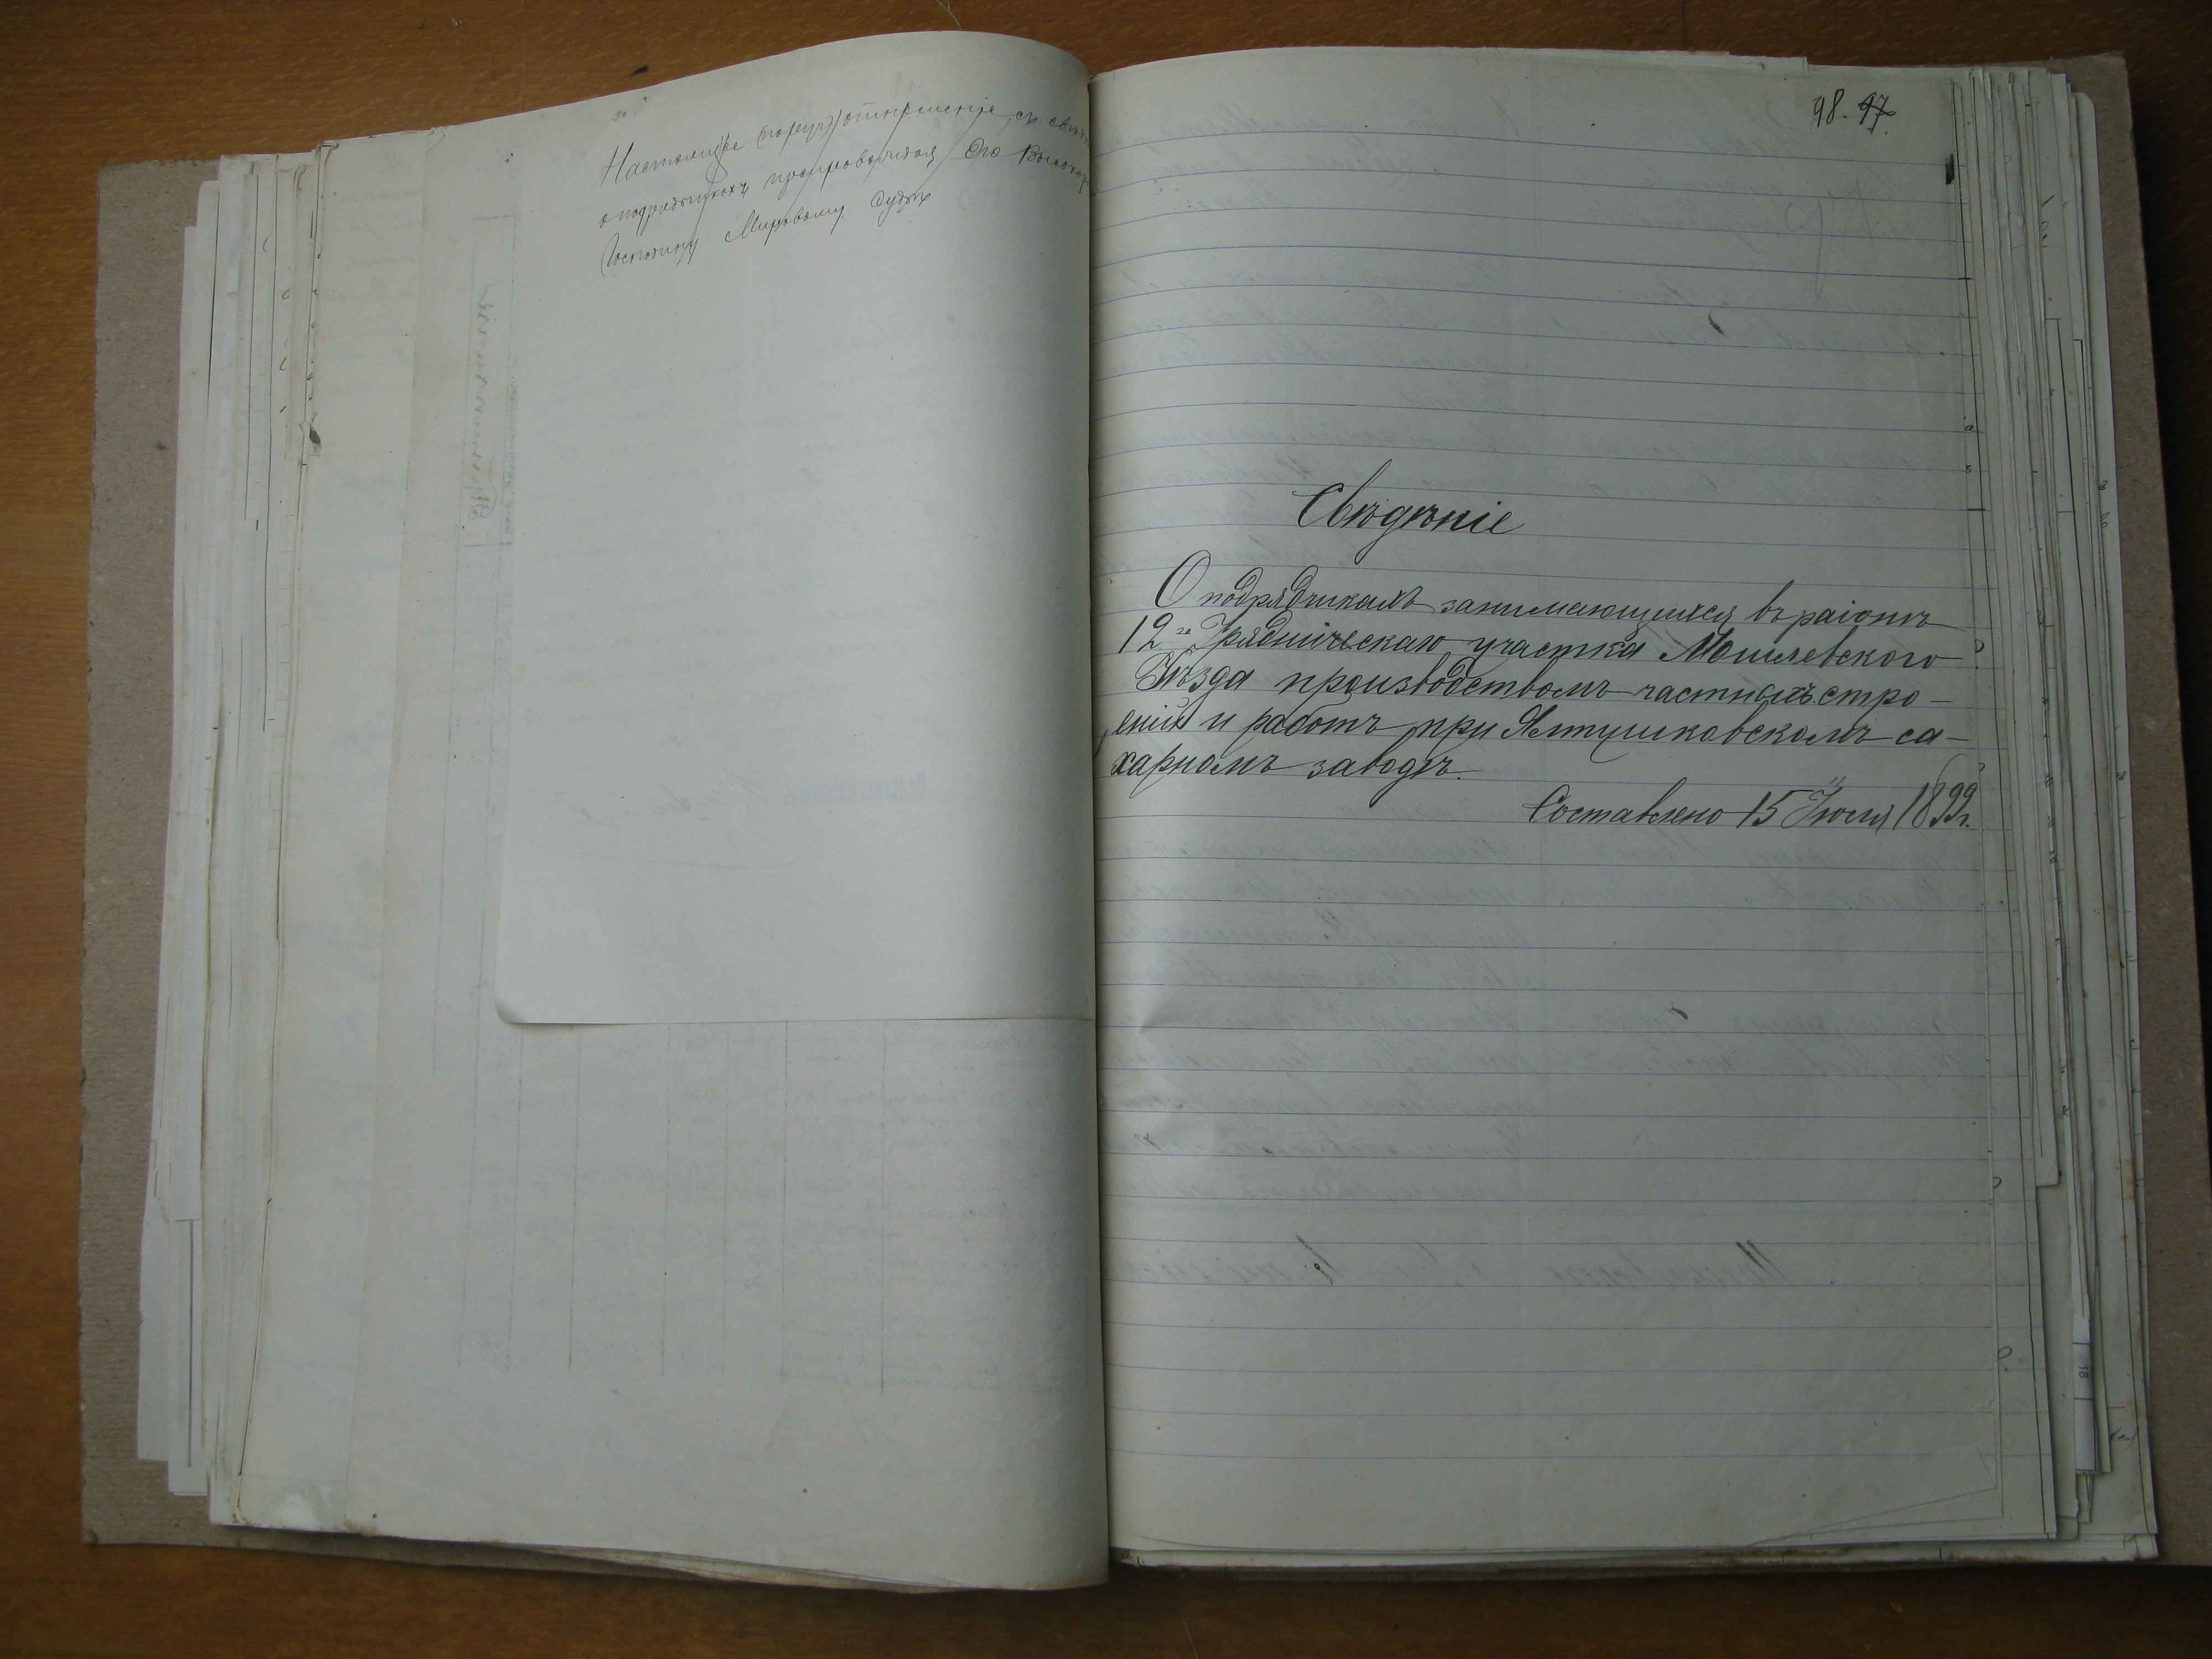 Настоящее отношение съ свѣд
о подрядчикахъ препровождая Его Высокор
Господину Мировому Судьѣ
98. 97.
Свѣдѣніе
О подрядчикахъ занимающихся въ раіонѣ
12го Урядническаго участка Могилевского
Уѣзда производствомъ частныхъ стро-
еній и работъ при Ялтушковскомъ са-
харномъ заводѣ.
Составлено 15 Іюля 1899 г.